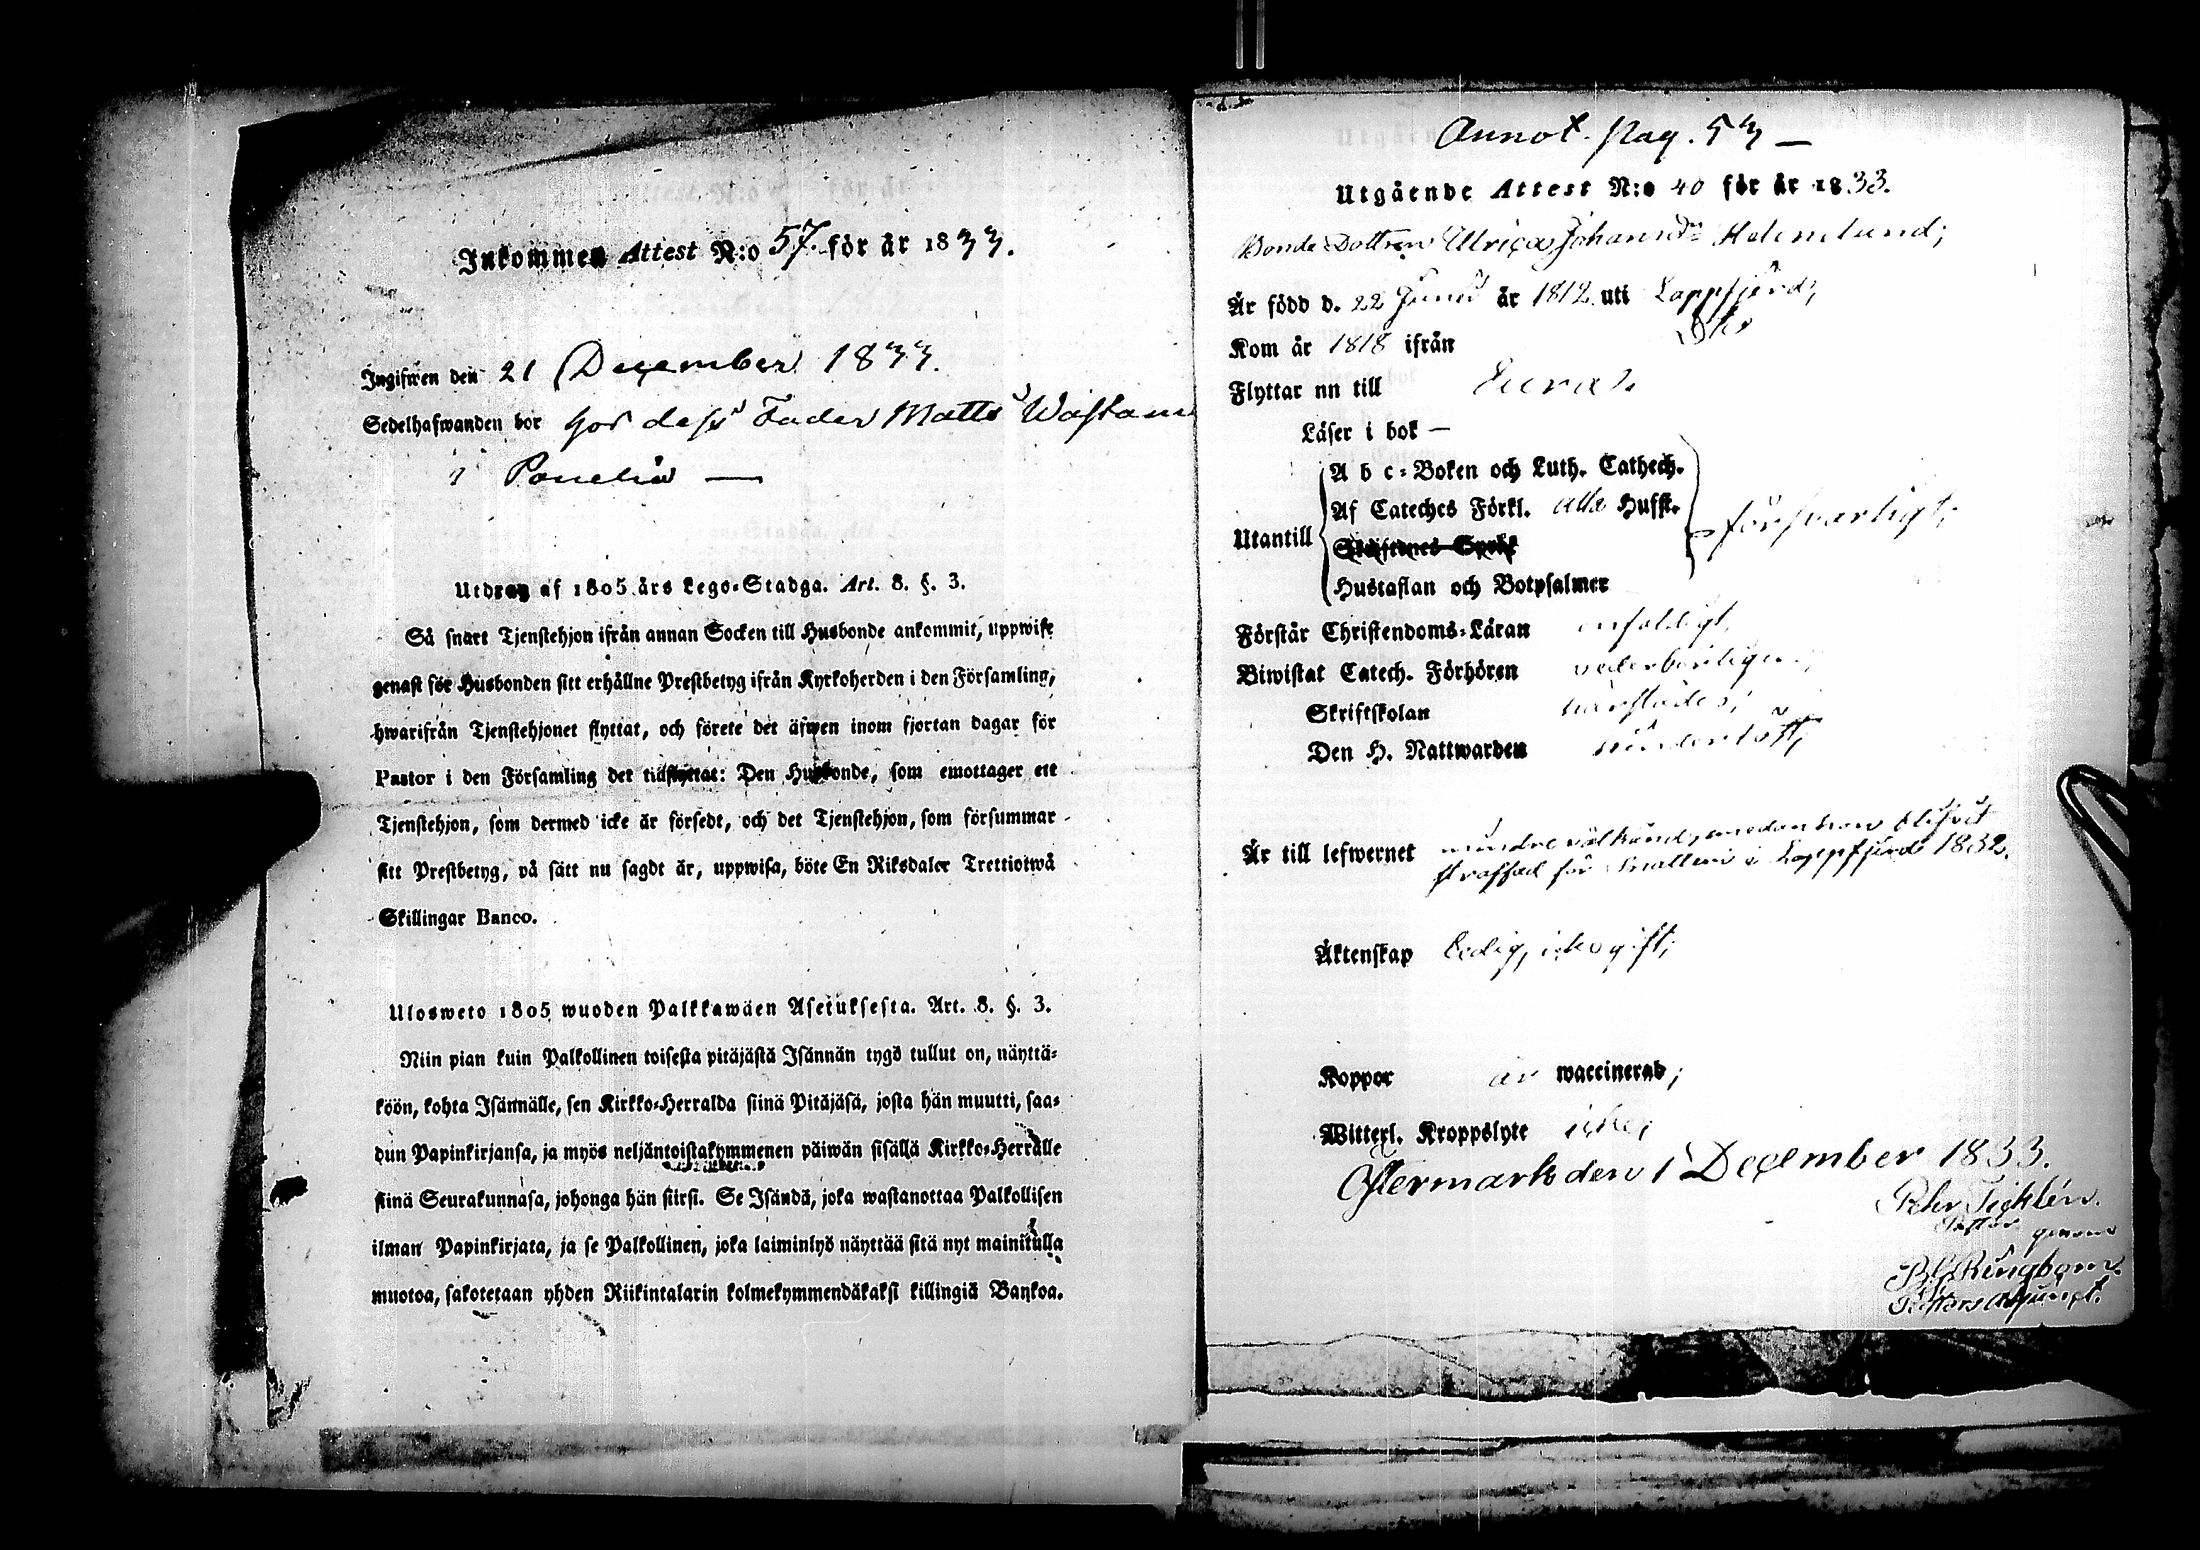 Inkommen Attest N:o 57. för år 1833.
Ingifwen den 21 December 1833.
Sedelhafwanden bor hos dess Fader Matts
i Panelia —
Utdrag af 1805 års Lego-Stadga. Art. 8. §. 3.
Så snart Tjenstehjon ifrån annan Socken till Husbonde ankommit, uppwise
genast för Husbonden sitt erhållne Prestbetyg ifrån Kyrkoherden i den Församling,
hwarifrån Tjenstehjonet flyttat, och förete det äfwen inom fjortan dagar för
Pastor i den Församling det tillflyttat: Den Husbonde, som emottager ett
Tjenstehjon, som dermed icke är försedt, och det Tjenstehjon, som försummar
sitt Prestbetyg, på sätt nu sagdt är, uppwisa, böte En Riksdaler Trettiotwå
Skillingar Banco.
Ulosweto 1805 wuoden Palkkawäen Asetuksesta. Art. 8. §. 3.
Niin pian kuin Palkollinen toisesta pitäjästä Isännän tygö tullut on, näyttä-
köön, kohta Isännälle, sen Kirkko-Herralda siinä Pitäjäsä, josta hän muutti, saa-
dun Papinkirjansa, ja myös neljäntoistakymmenen päiwän sisällä Kirkko-Herralle
siinä Seurakunnasa, johonga hän siirsi. Se Isändä, joka wastanottaa Palkollisen
ilman Papinkirjata, ja se Palkollinen, joka laiminlyö näyttää sitä nyt mainitulla
muotoa, sakotetaan yhden Riikintalarin kolmekymmendäkaksi killingiä Bankoa.
Annot. pag. 53 —
Utgående Attest N:o 40 för år 1833.
Bonde Dottren Ulrica Johannsdr Helenelund;
Är född d. 22 Junii år 1812 uti Lappfjerd;
Kom år 1818 ifrån
Flyttar nu till Eura.
Läser i bok —
A b c-Boken och Luth. Cathech.
Af Cateches Förkl. alla Hufst.
Utantill försvarligt;
Skriftenes Språk
Hustaflan och Botpsalmer
Förstår Christendoms-Läran enfaldigt;
Biwistat Catech. Förhören vederbörligen;
Skriftskolan härstädes;
Den H. Nattwarden
Är till lefwernet mindre välkänd, emedan hon blifvit
straffad för snatteri i Lappfjerd 1832.
Äktenskap ledig, icke gift;
Koppor är waccinerad;
Witterl. Kroppslyte icke;
Östermark den 1 December 1833.
Pehr Ticklén.
Pastor genom
Ringbom.
Pastors Adjunct.